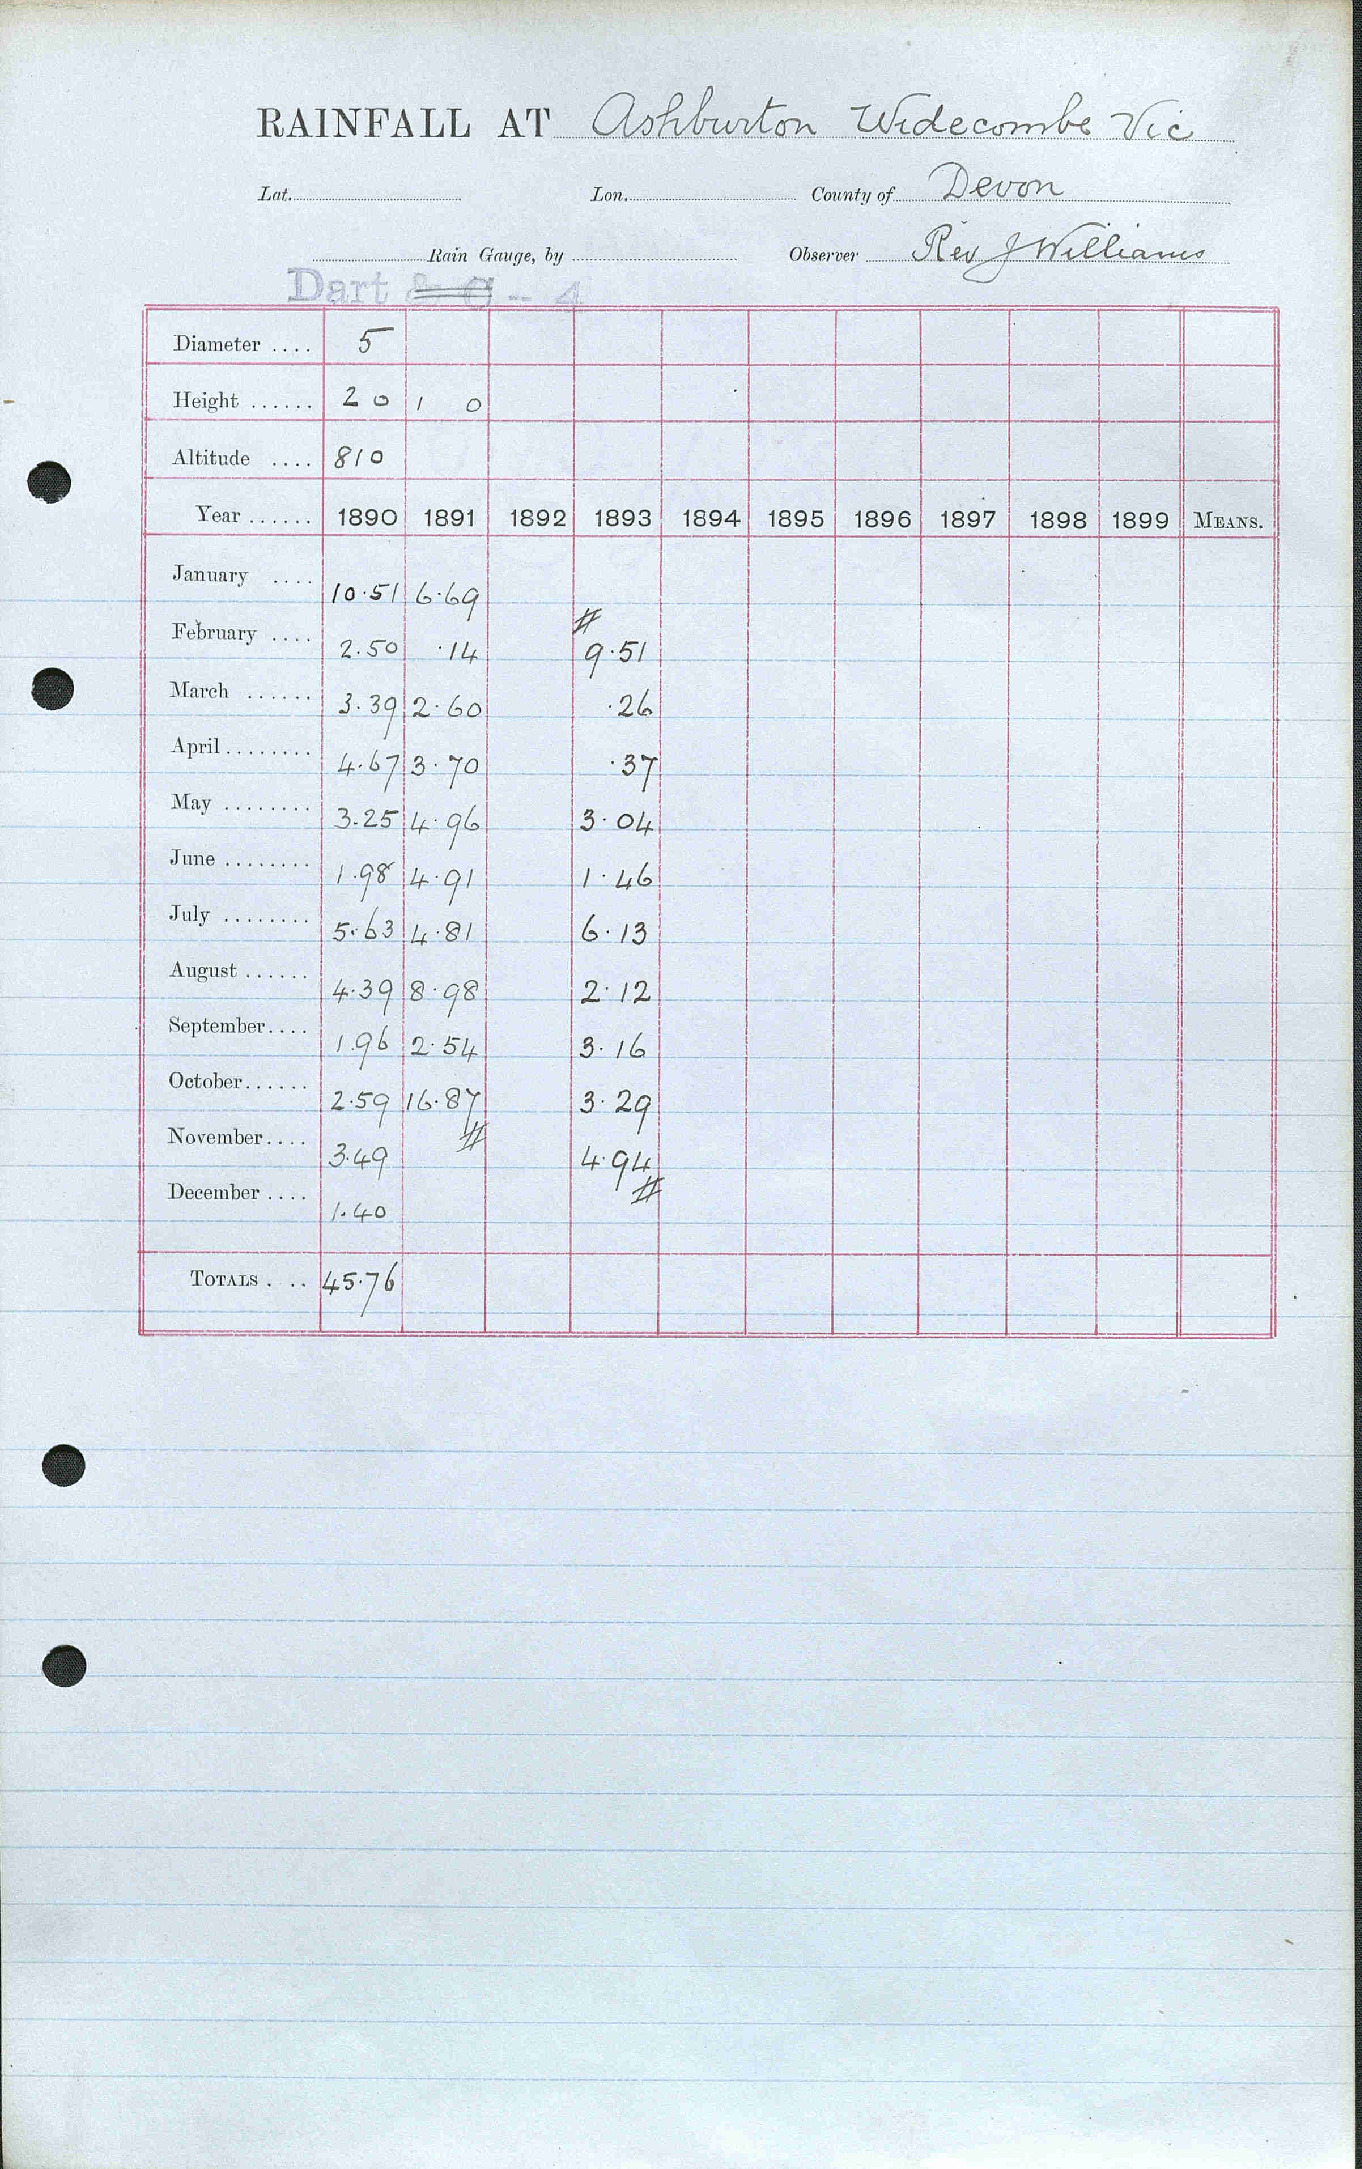 RAINFALL AT Ashburton Widecombe Vic
Lat. Lon. County of Devon
Rain Gauge, by Observer Rev J Williams
Dart - 4
Diameter .... 5
Height ...... 2 0 1 0
Altitude .... 810
Year ...... 1890 1891 1892 1893 1894 1895 1896 1897 1898 1899 MEANS.
January .... 10.51 6.69
February .... 2.50 .14 # 9.51
March ...... 3.39 2.60 .26
April ........ 4.67 3.70 .37
May ........ 3.25 4.96 3.04
June ........ 1.98 4.91 1.46
July ........ 5.63 4.81 6.13
August ...... 4.39 8.98 2.12
September.... 1.96 2.54 3.16
October...... 2.59 16.87 3.29
November.... 3.49 # 4.94
December .... 1.40 #
TOTALS . .. 45.76